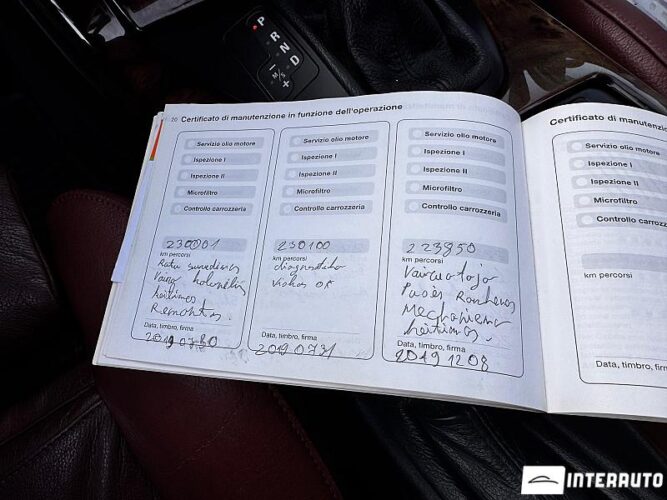 P
R
N
D
I
M S
+
20 Certificato di manutenzione in funzione dell'operazione
Servizio olio motore
Ispezione I
Ispezione II
Microfiltro
Controllo carrozzeria
230001
km percorsi
Ratu suvedimas
Variq
keitimas
Remontas.
Data, timbro, firma
2019 07 30
Servizio olio motore
Ispezione I
Ispezione II
Microfiltro
Controllo carrozzeria
230100
km percorsi
diagnostika
viskas OK
Data, timbro, firma
2019 0731
Servizio olio motore
Ispezione I
Ispezione II
Microfiltro
Controllo carrozzeria
223850
km percorsi
Vairuotojo
Pusės Rankenos
keitimas.
Data, timbro, firma
2019 12 08
Certificato di manutenz
Servizio olio motore
Ispezione I
Ispezione II
Microfiltro
Controllo carrozzeria
km percorsi
Data, timbro, firm
INTERAUTO